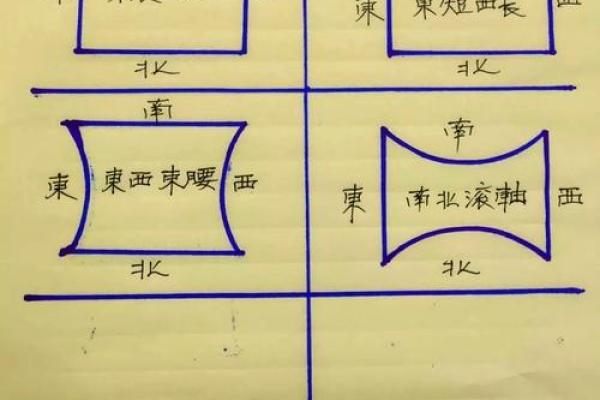 東 東短西長
北 北
南 南
東 東西束腰 西 東 南北滚軸 西
北 北